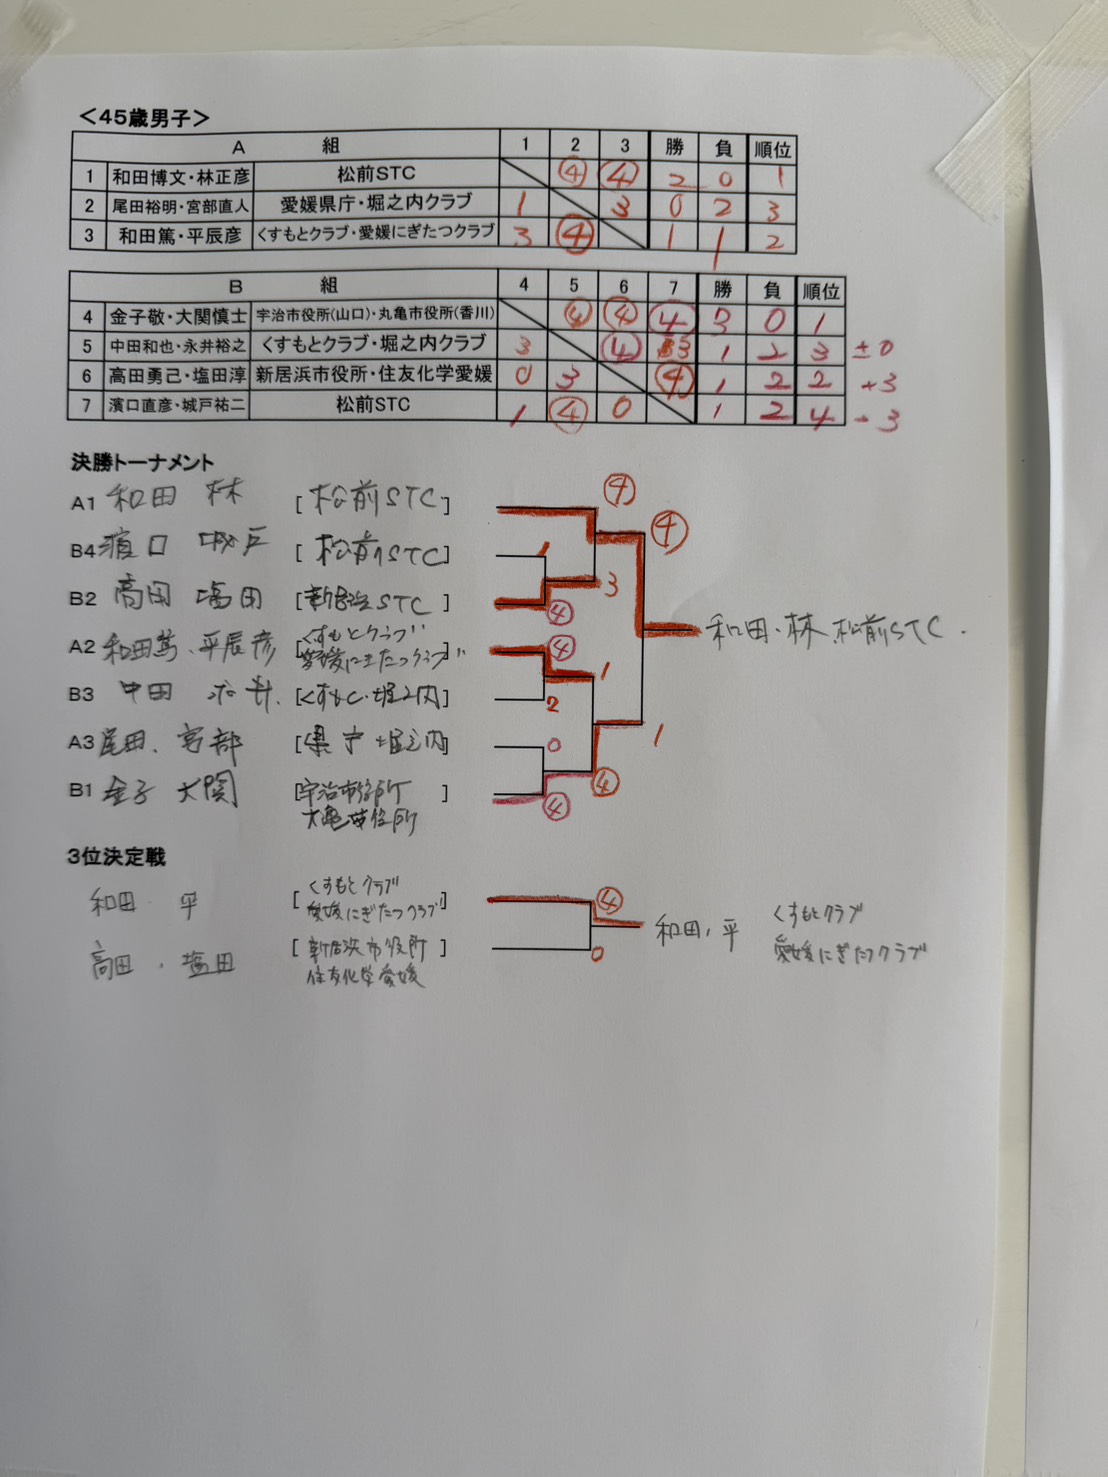 ＜45歳男子＞
A 組 1 2 3 勝 負 順位
1 和田博文・林正彦 松前STC ④ ④ 2 0 1
2 尾田裕明・宮部直人 愛媛県庁・堀之内クラブ 1 3 0 2 3
3 和田篤・平辰彦 くすもとクラブ・愛媛にぎたつクラブ 3 ④ 1 1 2
B 組 4 5 6 7 勝 負 順位
4 金子敬・大関慎士 宇治市役所(山口)・丸亀市役所(香川) ④ ④ ④ 3 0 1
5 中田和也・永井裕之 くすもとクラブ・堀之内クラブ 3 ④ 3 1 2 3 ±0
6 高田勇己・塩田淳 新居浜市役所・住友化学愛媛 0 3 ④ 1 2 2 +3
7 濱口直彦・城戸祐二 松前STC 1 ④ 0 1 2 4 -3
決勝トーナメント
A1 和田 林 [松前STC] ④
④
B4 濱口 城戸 [松前STC] 1
3
B2 高田 塩田 [新居浜STC] ④
和田・林 松前STC.
A2 和田篤・平辰彦 [くすもとクラブ
愛媛にぎたつクラブ] ④
1
B3 中田 永井 [くすもと・堀之内] 2
1
A3 尾田、宮部 [県庁 堀之内] 0
④
B1 金子 大関 [宇治市役所
大亀市役所] ④
3位決定戦
和田 平 [くすもとクラブ
愛媛にぎたつクラブ] ④
和田、平 くすもとクラブ
愛媛にぎたつクラブ
高田、塩田 [新居浜市役所
住友化学愛媛] 0